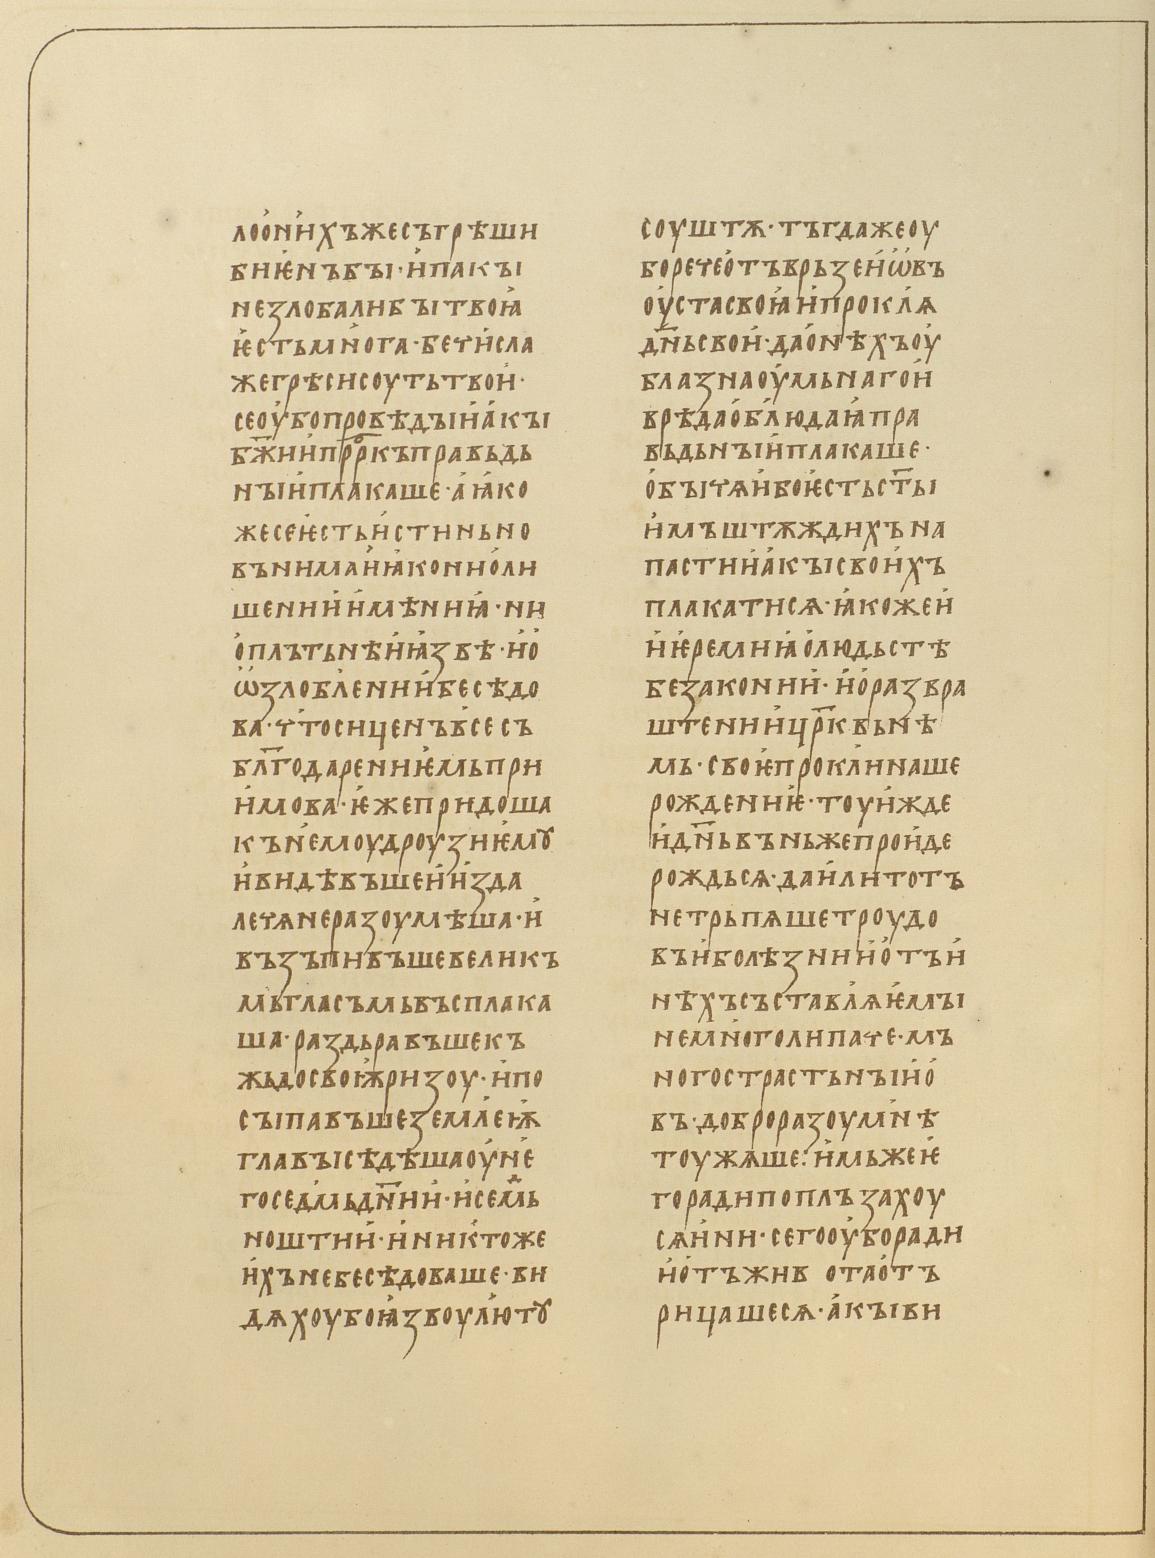 лоо́ни́хъжесъгрѣши
бию́нъбы·и́пакы
незлобалибытвоꙗ́
ѥ́стьмн́ога·бечи́сла
жегрѣсисоутьтвои́·
сеоу́бопровѣдыи́а́кы
бж҃ии́пррⷪ҇къправьдь
ныи́плакаше·а́ꙗ́ко
жесеѥ́стьи́стиньно
вънимаи́ꙗ́коинѡ́ли
шениии́мѣниꙗ́·ни
о́плътьнѣи́ꙗ́звѣ·ио́
ѡ҆злобл́ении́бесѣдо
ва·чт́осиценъв́сесъ
бл҃годарен́иѥ́мьпри
и́мова·ѥ́жепридоша
къне́моудроузиѥ́мꙋ
и́видѣвъшеи́и́зда
лечѧнеразоумѣша·и́
възъпивъшевеликъ
мьгласъмьвъсплака
ша·раздьравъшекъ
жьдосвоѭ́ризоу·и́по
сыпавъшеземл́еѭ́
главысѣдѣшаоу́не́
госедм́ьдн҃ии́·и́семⷣь
ноштии́·и́никт́оже
и́хънебесѣдоваше·ви
дѧхоубоꙗ́звоул́ютꙋ
соуштѫ·тъгдажеоу
боречео́тъврьзеи́ѡ҆въ
оу́стасвоꙗ́и́прокл́ѧ
дн҃ьсвои́·дао́нѣхъоу́
блазнаоу́мьнагои́
врѣдао́бл́юдаꙗ́пра
вьдьныи́плакаше·
о́бычѧи́боѥ́стьст҃ы
и́мъштѫждихъна
пастии́а́кысвои́хъ
плакатисѧ·ꙗ́кожеи́
и́ѥ́ремиꙗ́о́людьстѣ
безаконии́·и́о́развра
штении́цр҃квьнѣ
мь·своѥ́прокл́инаше
рождениѥ́·тоуи́жде
и́дн҃ьвъньжепрои́де
рождьсѧ·даи́литотъ
нетрьпѧшетроудо
въи́болѣзнии́о́тъи́
нѣхъсъставл́ѧѥ́мы
немн́оголипаче·мъ
ногострастьныи́о́
въ·доброразоумн́ѣ
тоужѧше:и́мьжеѥ́
горадипоплъзахоу
сѧи́ни·сегооу́боради
и́о́тъжив отао́тъ
рицашесѧ·а́кыви